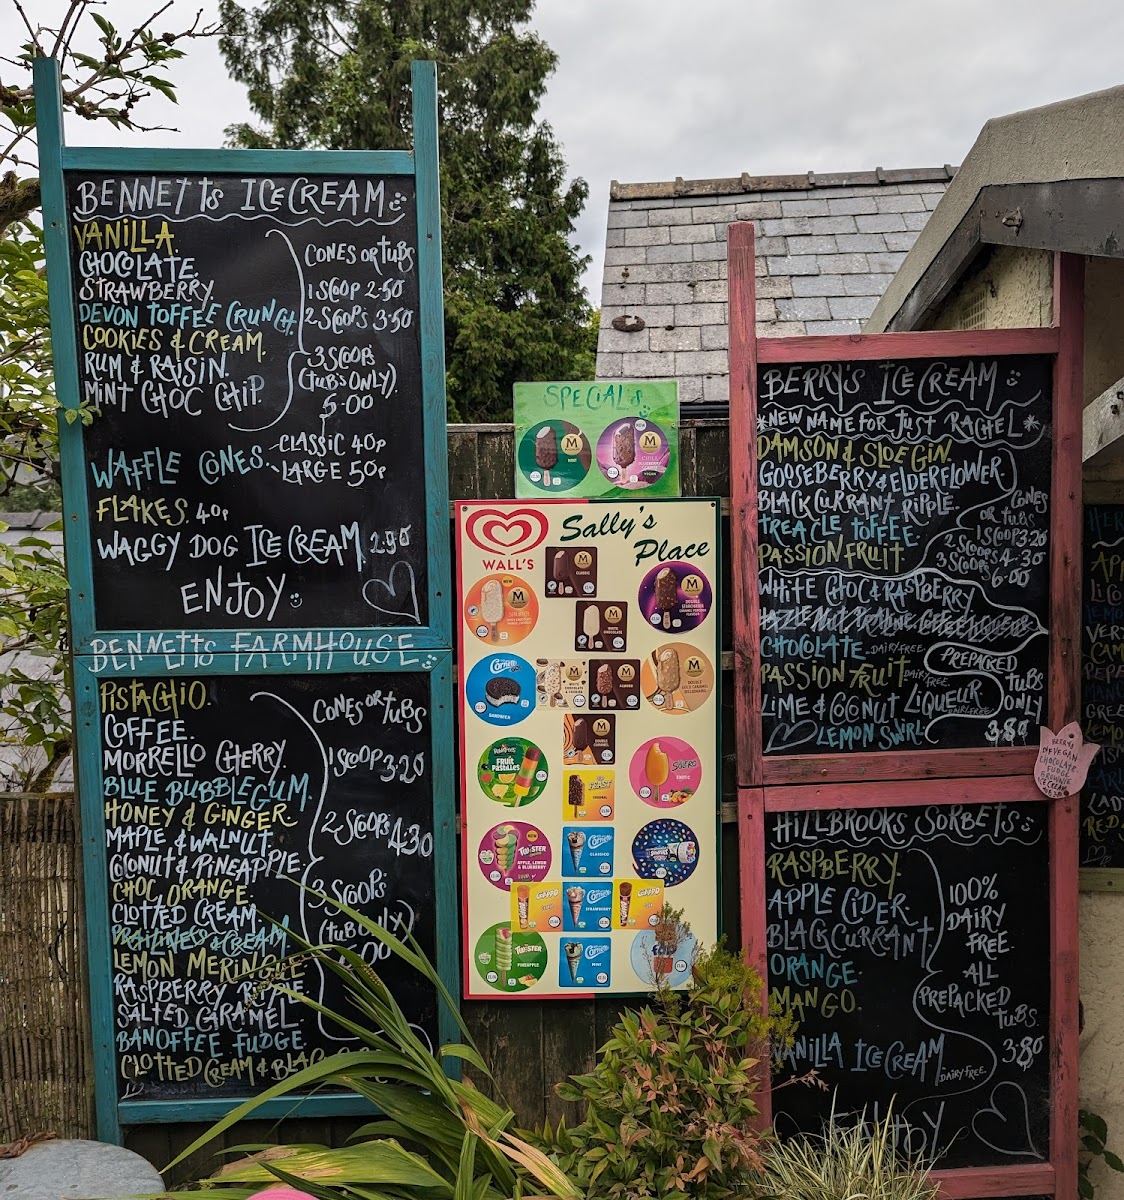 BENNETTS ICECREAM
VANILLA.
CHOCOLATE.
STRAWBERRY.
DEVON TOFFEE CRUNCH.
COOKIES & CREAM.
RUM & RAISIN.
MINT CHOC CHIP.
CONES OR TUBS
1 SCOOP 2·50
2 SCOOPS 3·50
3 SCOOPS
(TUBS ONLY).
5·00
WAFFLE CONES.
CLASSIC 40p
LARGE 50p
FLAKES. 40p
WAGGY DOG ICE CREAM. 2.90
ENJOY
BENNETTS FARMHOUSE
PISTACHIO.
COFFEE.
MORRELLO CHERRY.
BLUE BUBBLEGUM.
HONEY & GINGER
MAPLE & WALNUT.
COCONUT & PINEAPPLE.
CHOC ORANGE.
CLOTTED CREAM.
PRALINES & CREAM
LEMON MERINGUE.
RASPBERRY RIPPLE.
SALTED CARAMEL.
BANOFFEE FUDGE.
CLOTTED CREAM &
CONES OR TUBS
1 SCOOP 3·20
2 SCOOPS 4·30
3 SCOOPS
SPECIALS
WALL'S
Sally's
Place
CLASSIC
WHITE
CHOCOLATE
Cornetto
SANDWICH
ALMOND
FRUIT
PASTILLES
Solero
EXOTIC
TWISTER
APPLE, LEMON
& BLUEBERRY
Cornetto
CLASSICO
Cornetto
STRAWBERRY
TWISTER
PINEAPPLE
Cornetto
MINT
BERRY'S ICECREAM
*NEW NAME FOR JUST RACHEL*
DAMSON & SLOE GIN.
GOOSEBERRY & ELDERFLOWER
BLACKCURRANT RIPPLE.
TREACLE TOFFEE.
PASSION FRUIT
CONES
OR TUBS.
1 SCOOP 3·20
2 SCOOPS 4·30
3 SCOOPS 6·00
WHITE CHOC & RASPBERRY
CHOCOLATE - DAIRY FREE.
PASSION FRUIT DAIRY FREE.
LIME & COCONUT LIQUEUR
LEMON SWIRL
PREPACKED
TUBS
ONLY
3·80
BERRYS
VEGAN
CHOCOLATE
FUDGE
BROWNIE
HILLBROOKS SORBETS
RASPBERRY
APPLE CIDER.
BLACKCURRANT
ORANGE.
MANGO.
100%
DAIRY
FREE.
ALL
PREPACKED
TUBS.
3·80
VANILLA ICECREAM
- DAIRY FREE.
ENJOY